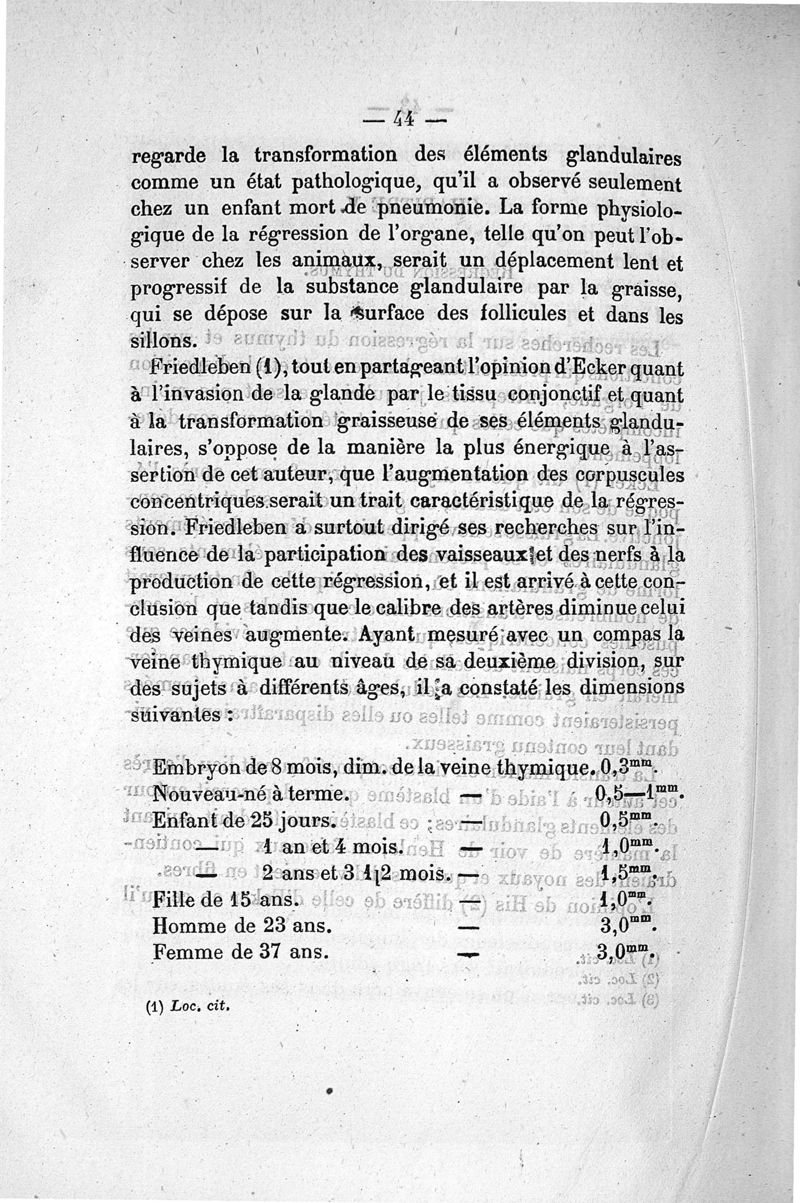 — 44 —
regarde la transformation des éléments glandulaires
comme un état pathologique, qu'il a observé seulement
chez un enfant mort de pneumonie. La forme physiolo-
gique de la régression de l'organe, telle qu'on peut l'ob-
server chez les animaux, serait un déplacement lent et
progressif de la substance glandulaire par la graisse,
qui se dépose sur la surface des follicules et dans les
sillons.
Friedleben (1), tout en partageant l'opinion d'Ecker quant
à l'invasion de la glande par le tissu conjonctif et quant
à la transformation graisseuse de ses éléments glandu-
laires, s'oppose de la manière la plus énergique à l'as-
sertion de cet auteur, que l'augmentation des corpuscules
concentriques serait un trait caractéristique de la régres-
sion. Friedleben a surtout dirigé ses recherches sur l'in-
fluence de la participation des vaisseaux et des nerfs à la
production de cette régression, et il est arrivé à cette con-
clusion que tandis que le calibre des artères diminue celui
des veines augmente. Ayant mesuré avec un compas la
veine thymique au niveau de sa deuxième division, sur
des sujets à différents âges, il a constaté les dimensions
suivantes :
Embryon de 8 mois, dim. de la veine thymique. 0,3mm.
Nouveau-né à terme. — 0,5—1mm.
Enfant de 25 jours. — 0,5mm.
— 1 an et 4 mois. — 1,0mm.
— 2 ans et 3 1|2 mois. — 1,5mm.
Fille de 15 ans. — 1,0mm.
Homme de 23 ans. — 3,0mm.
Femme de 37 ans. — 3,0mm.
(1) Loc. cit.